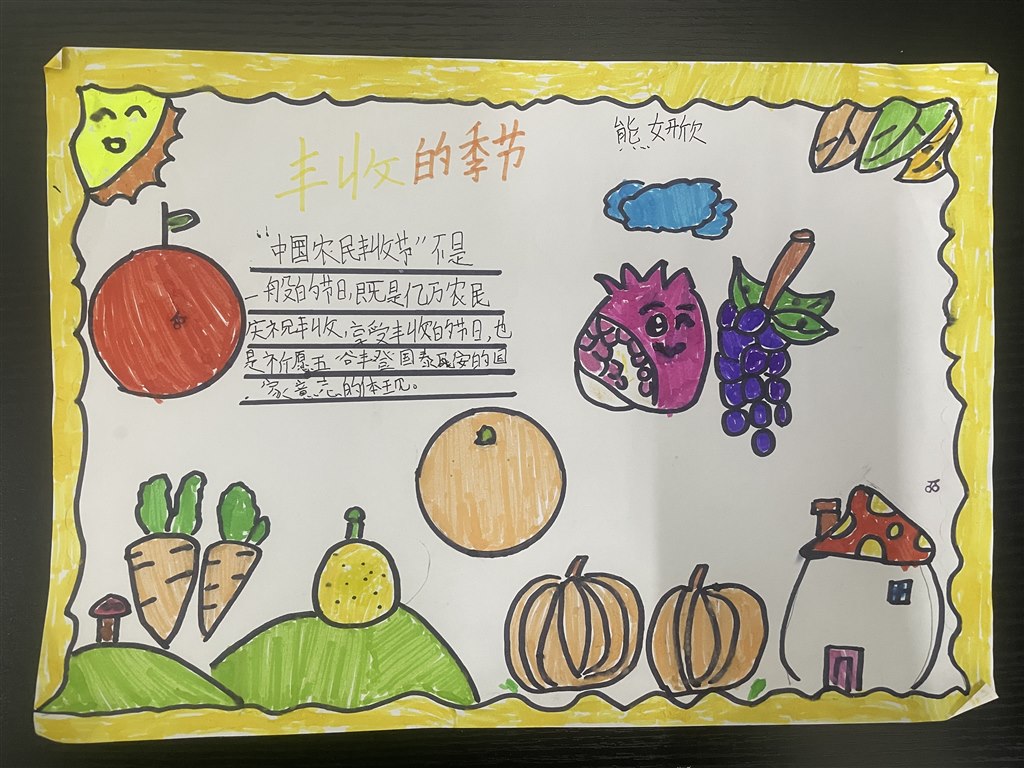 丰收的季节
熊妍欣
“中国农民丰收节”不是
一般的节日,既是亿万农民
庆祝丰收,享受丰收的节日,也
是祈愿五谷丰登国泰民安的国
家意志的体现。